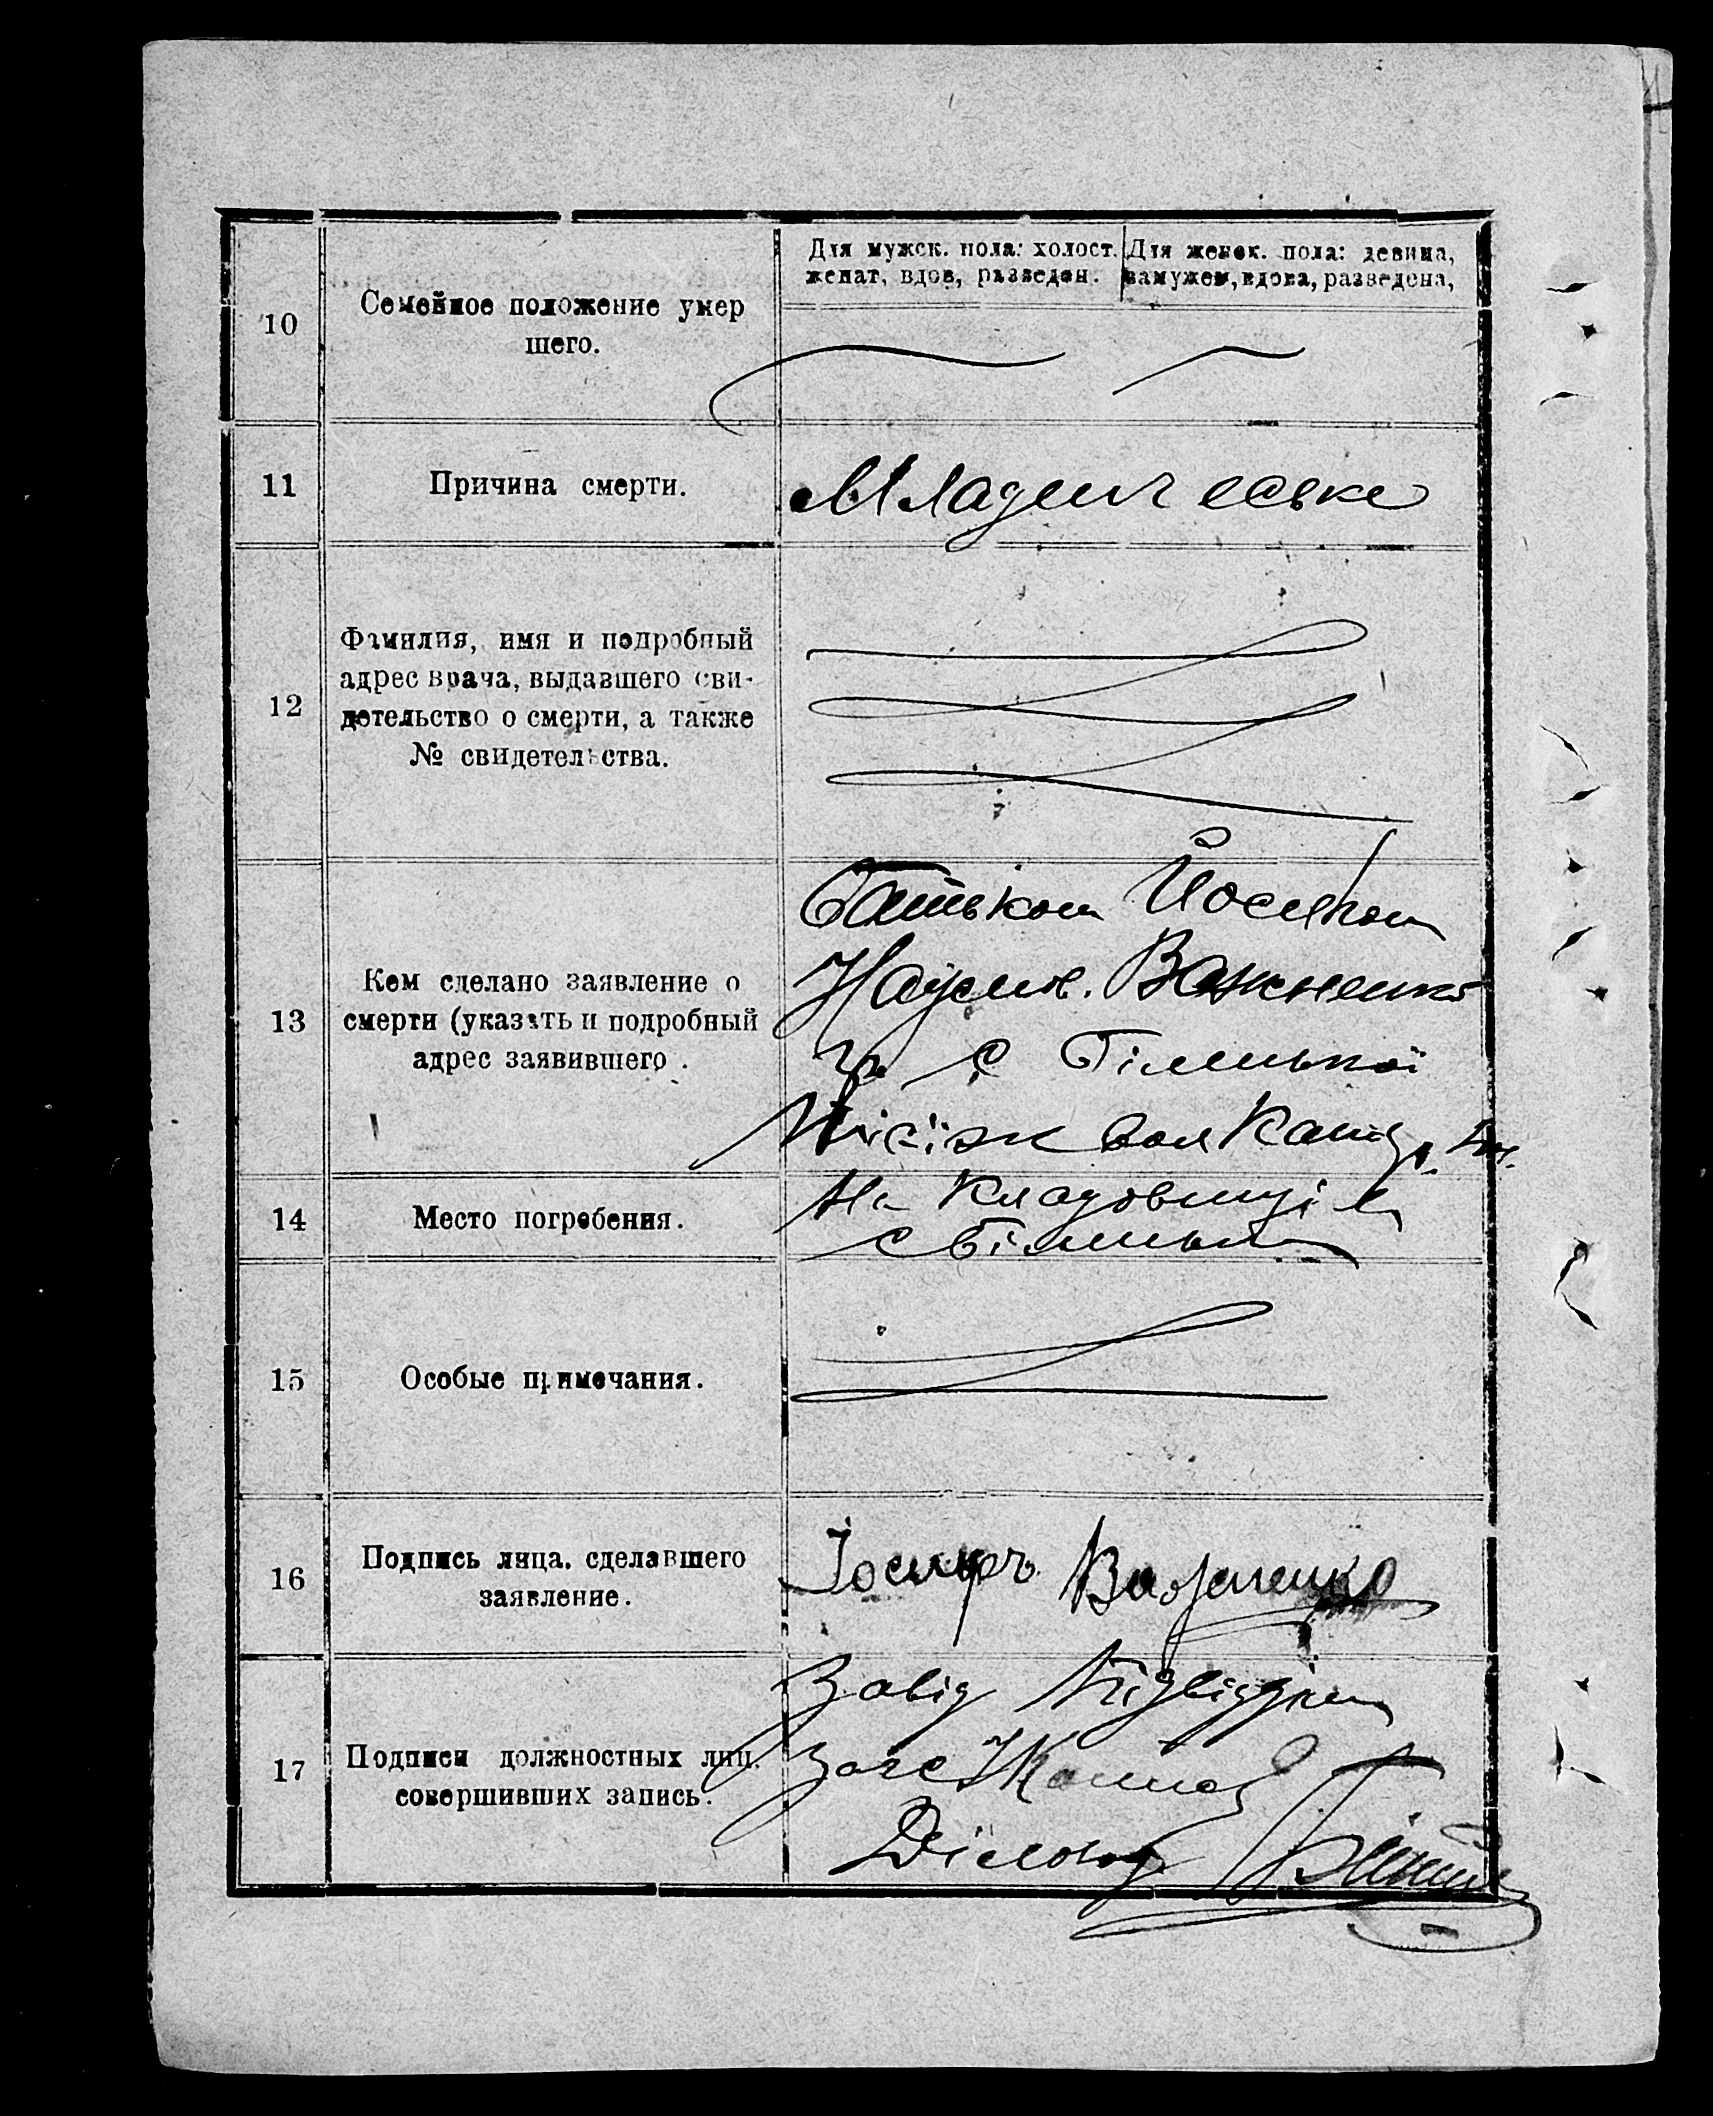 Для мужск. пола: холост. женат, вдов, разведен.
Для женск. пола: девица, замужем, вдова, разведена,
10
Семейное положение умер
шего.
11
Причина смерти.
Младенческе
12
Фамилия, имя и подробный
адрес врача, выдавшего сви-
детельство о смерти, а также
№ свидетельства.
13
Кем сделано заявление о
смерти (указать и подробный
адрес заявившего.
Батьком Йосипом
Наумов. Важненко
гр. с
вол
14
Место погребения.
На Кладовищі в
с
15
Особые примечания.
16
Подпись лица, сделавшего
заявление.
Іосифъ Важненко
17
Подписи должностных лиц,
совершивших запись.
Завід Підвідділом
Загс
Діловод